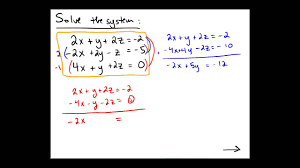 Solve the system:
2x + y + 2z = -2
2(-2x + 2y - z = -5)
-1(4x + y + 2z = 0)
2x + y + 2z = -2
-4x + 4y - 2z = -10
-2x + 5y = -12
2x + y + 2z = -2
-4x - y - 2z = 0
-2x =